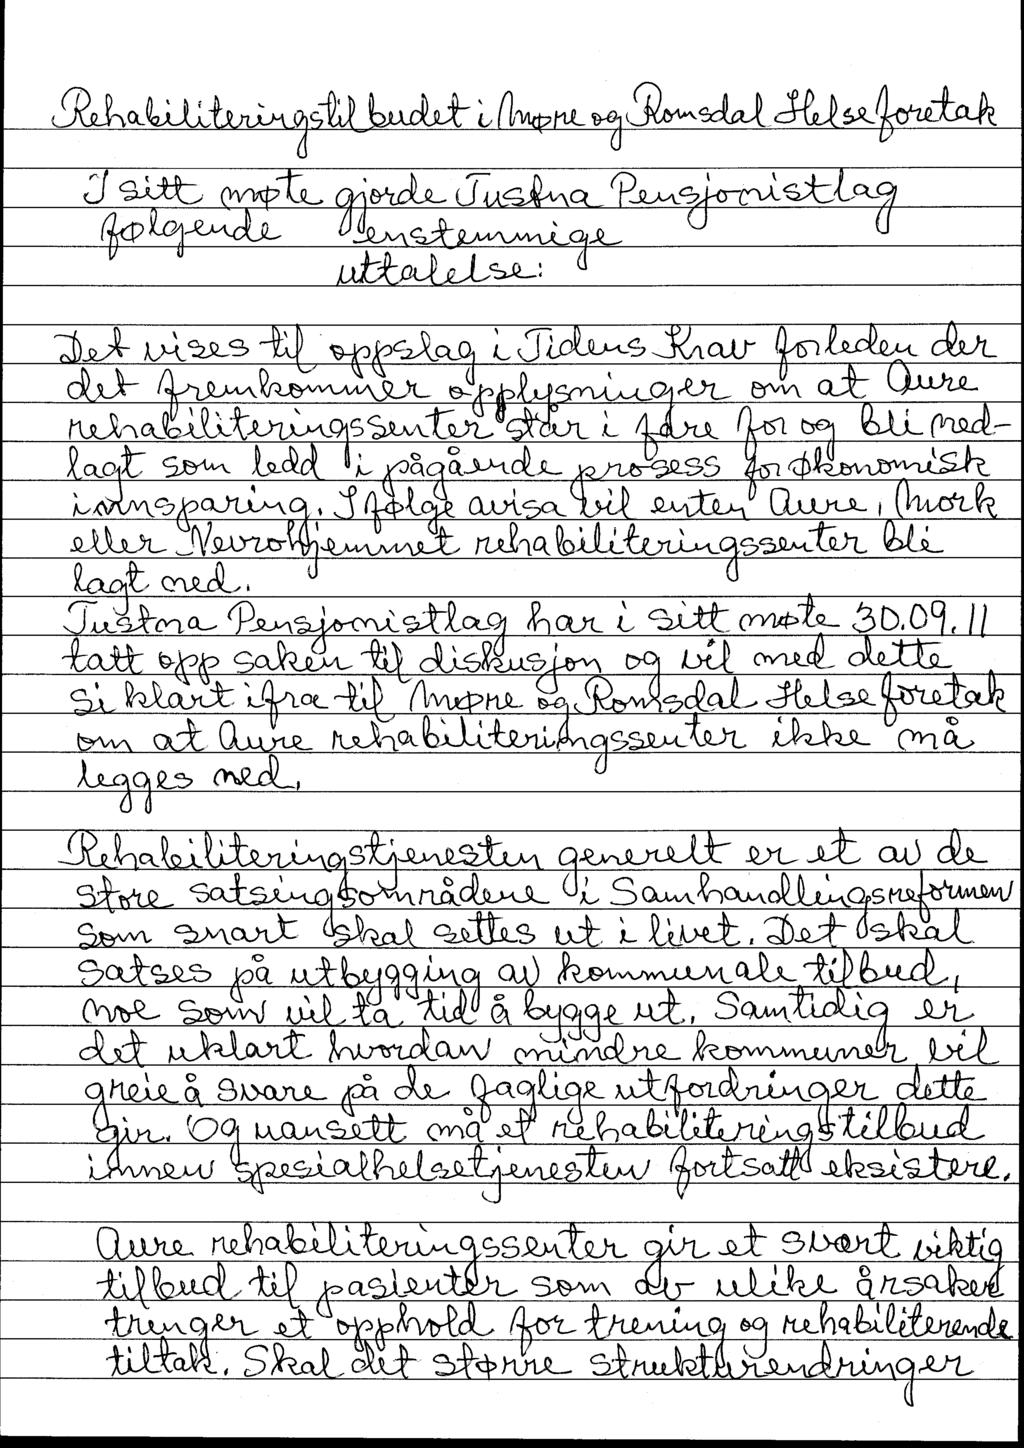 Rehabiliteringstilbudet i Møre og Romsdal Helseforetak
I sitt møte gjorde Tustna Pensjonistlag
følgende enstemmige
uttalelse:
Det vises til oppslag i Tidens Krav forleden der
det fremkommer opplysninger om at Aure
rehabiliteringssenter står i fare for og bli ned-
lagt som ledd i pågående prosess for økonomisk
innsparing. Ifølge avisa vil enten Aure, Mork
eller Nevrohjemmet rehabiliteringssenter bli
lagt ned.
Tustna Pensjonistlag har i sitt møte 30.09.11
tatt opp saken til diskusjon og vil med dette
si klart ifra til Møre og Romsdal Helseforetak
om at Aure rehabiliteringssenter ikke må
legges ned.
Rehabiliteringstjenesten generelt er et av de
store satsingsområdene i Samhandlingsreformen
som snart skal settes ut i livet. Det skal
satses på utbygging av kommunale tilbud,
noe som vil ta tid å bygge ut. Samtidig er
det uklart hvordan mindre kommuner vil
greie å svare på de faglige utfordringer dette
gir. Og uansett må et rehabiliteringstilbud
innen spesialhelsetjenesten fortsatt eksistere.
Aure rehabiliteringssenter gir et svært viktig
tilbud til pasienter som av ulike årsaker
trenger et opphold for trening og rehabiliterende
tiltak. Skal det større strukturendringer